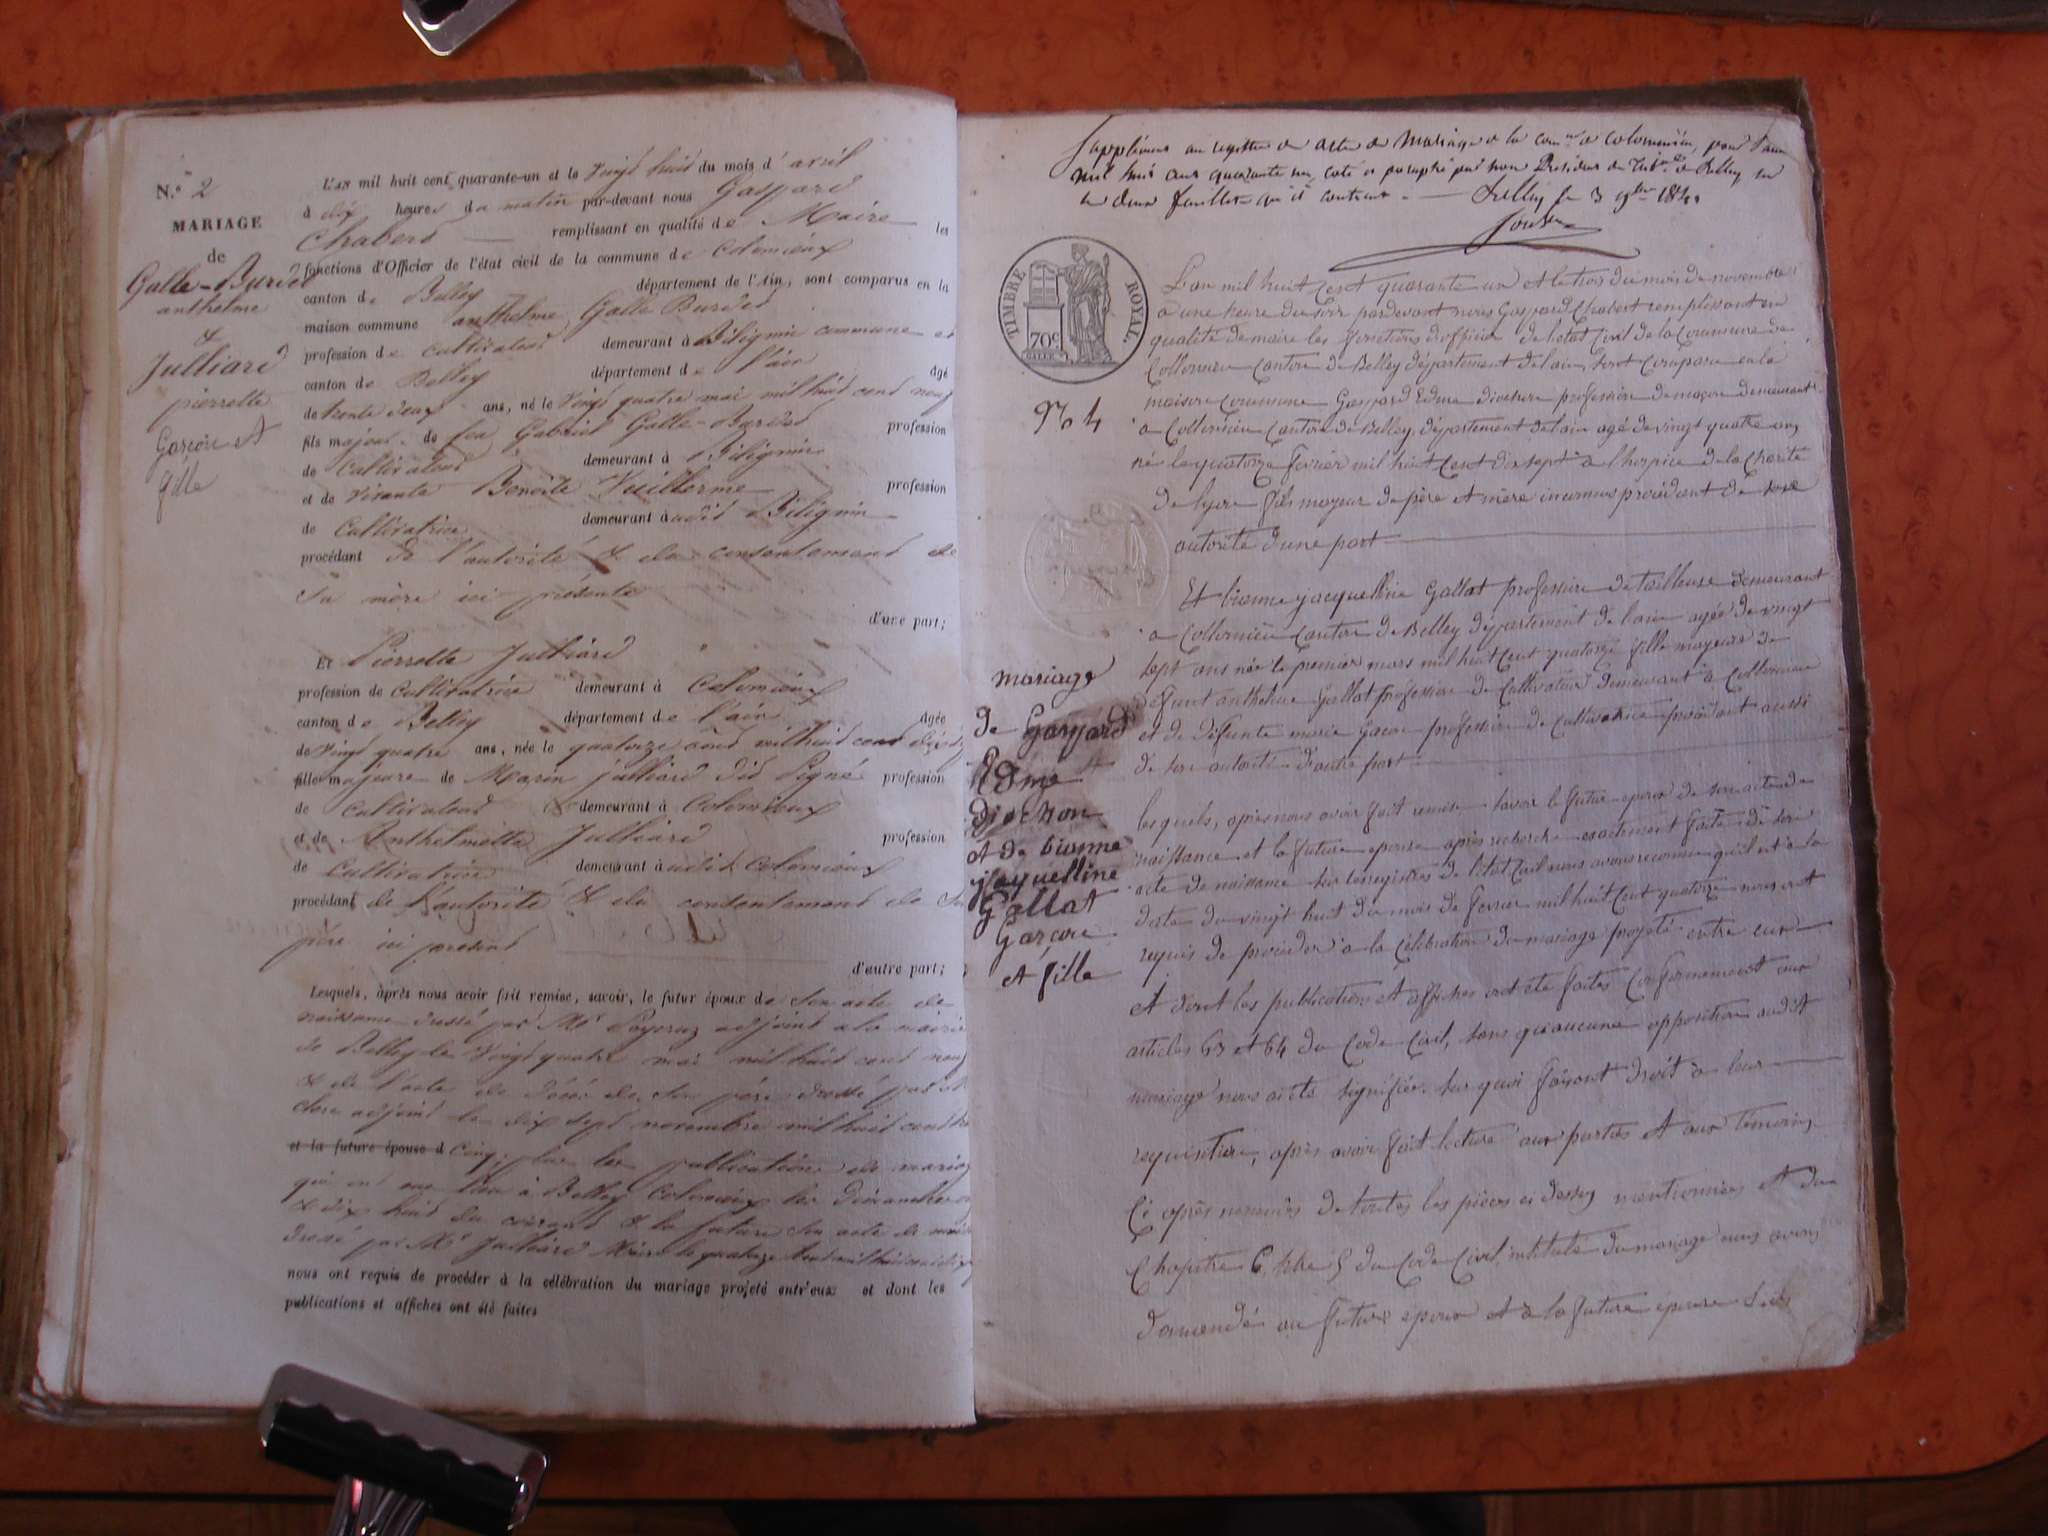 N.º 2
MARIAGE
de
Galle-Burdet
anthelme
&
Julliard
pierrette
Garçon et
fille
L'AN mil huit cent quarante-un et le vingt huit du mois d'avril
à dix heures du matin par-devant nous Gaspard
Chabert remplissant en qualité de Maire les
fonctions d'Officier de l'état civil de la commune de Colomieux
canton de Belley département de l'Ain, sont comparus en la
maison commune anthelme Galle Burdet
profession de cultivateur demeurant à Bilignin commune et
canton de Belley département de l'ain âgé
de trente deux ans, né le vingt quatre mai mil huit cent neuf
fils majeur de feu Gabriel Galle-Burdet profession
de cultivateur demeurant à Bilignin
et de vivante Benoite Vuillerme profession
de Cultivatrice demeurant audit Bilignin
procédant de l'autorité & du consentement de
sa mère ici présente
d'une part;
ET Pierrette Julliard
profession de cultivatrice demeurant à Colomieux
canton de Belley département de l'ain âgée
de vingt quatre ans, née le quatorze août mil huit cent
fille majeure de Marin Julliard dit Pigné profession
de cultivateur demeurant à Colomieux
et de Anthelmette Julliard profession
de Cultivatrice demeurant audit Colomieux
procédant de l'autorité & du consentement de son
père ici présent
d'autre part;
Lesquels, après nous avoir fait remise, savoir, le futur époux de son acte de
naissance dressé par Mr adjoint à la mairie
de Belley le vingt quatre mai mil huit cent neuf
& de l'acte de décès de son père dressé par
adjoint le dix sept novembre mil huit cent
et la future épouse d cinq, plus les publications de mariage
qui ont eu lieu à Belley Colomieux les dimanches
& dix huit du courant & la future son acte de
dressé par Mr Julliard Maire le quatorze août mil huit cent
nous ont requis de procéder à la célébration du mariage projeté entr'eux et dont les
publications et affiches ont été faites
Supplément au registre des actes de Mariage de la comne de Colomieu, pour l'an
mil huit cent quarante un, coté et paraphé par nous Président du de Belley sur
les deux feuillets qu'il contient. Belley le 3 9bre 1841
TIMBRE ROYAL
70c
No 4
mariage
de Gaspard
Edme
diochon
et de bienme
jacquelline
Gallat
Garçon
et fille
L'an mil huit cent quarante un et le trois du mois de novembre
a une heure du soir pardevant nous Gaspard Chabert remplissant en
qualité de maire les fonctions d'officier de l'etat Civil de la Commune de
Collomieu Canton de Belley département de lain, sont comparu en la
maison Commune Gaspard Edme profession de maçon demeurant
a Collomieu Canton de Belley, département de lain agé de vingt quatre ans
né le quatorze fevrier mil huit cent dix sept a l'hospice de la Charité
de lyon fils mayeur de père et mère inconnus procédant de son
autorité d'une part
Et bienme jacquelline Gallat profession de tailleuse demeurant
a Collomieu Canton de Belley département de lain agée de vingt
sept ans née le premier mars mil huit Cent quatorze fille mayeure de
défunt anthelme Gallat profession de Cultivateur demeurant à Collomieu
et de défunte marie profession de cultivatrice procédant aussi
de son autorité d'autre part
lesquels, après nous avoir fait remise savoir le futur epoux de son acte de
naissance et la future epouse après recherche exactement faite de son
acte de naissance sur les registres de l'état Civil nous avons reconnu qu'il est à la
date du vingt huit du mois de fevrier mil huit Cent quatorze nous ont
requis de procéder a la célébration du mariage projeté entre eux
et dont les publications et affiches ont été faites Conformement aux
articles 63 et 64 du Code Civil, sans qu'aucune opposition audit
mariage nous ait été signifiée. sur quoi faisant droit à leur
requisition, après avoir fait lecture aux parties et aux témoins
Ci après nommés de toutes les pièces ci dessus mentionnées et du
Chapitre 6, titre 5 du Code Civil, intitulé du mariage nous avons
demandé au futur epoux et a la future épouse s'ils